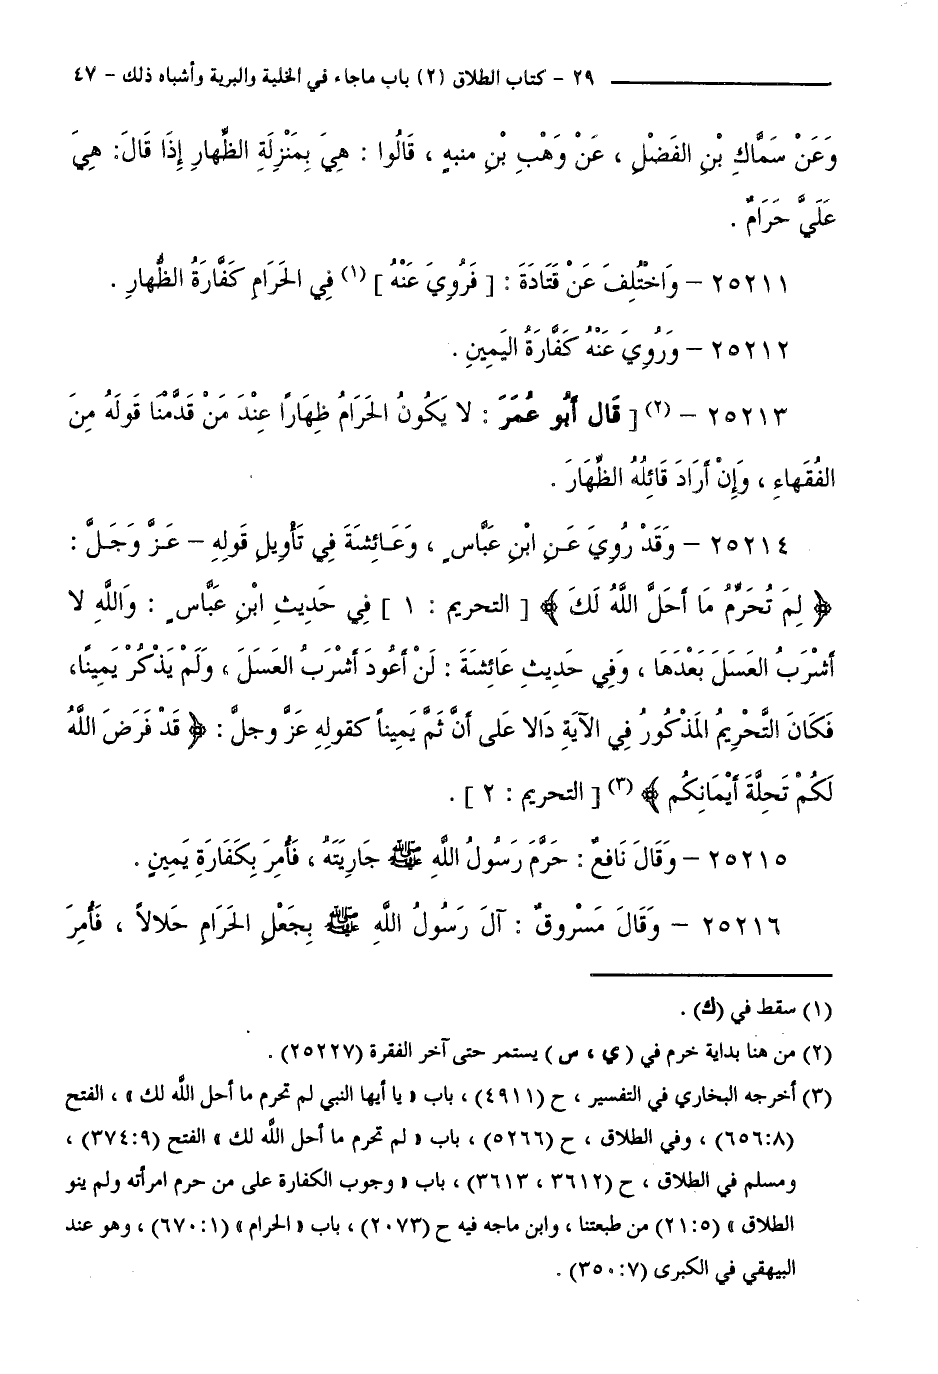 ٢٩ – كتاب الطلاق (٢) باب ماجاء في الخلية والبرية وأشباه ذلك – ٤٧
وَعَنْ سَمَّاكِ بْنِ الفَضْلِ ، عَنْ وَهْبِ بْنِ منبهٍ ، قَالُوا : هِيَ بِمَنْزِلَةِ الظِّهارِ إِذَا قَالَ: هِيَ
عَلَيَّ حَرَامٌ .
٢٥٢١١ – وَاخْتُلِفَ عَنْ قَتَادَةَ : [ فَرُوِيَ عَنْهُ ] (١) فِي الحَرَامِ كَفَّارَةُ الظُّهارِ .
٢٥٢١٢ – وَرُوِيَ عَنْهُ كَفَّارَةُ اليَمِينِ .
٢٥٢١٣ – (٢) [ قَال أَبُو عُمَرَ : لا يَكُونُ الحَرَامُ ظِهَاراً عِنْدَ مَنْ قَدَّمْنَا قَولَهُ مِنَ
الفُقَهاءِ ، وَإِنْ أَرَادَ قَائِلُهُ الظِّهَارَ .
٢٥٢١٤ – وَقَدْ رُوِيَ عَنِ ابْنِ عَبَّاسٍ ، وَعَائِشَةَ فِي تَأْوِيلِ قَولِهِ – عَزَّ وَجَلَّ :
﴿ لِمَ تُحَرِّمُ مَا أَحَلَّ اللَّهُ لَكَ ﴾ [ التحريم : ١ ] فِي حَدِيثِ ابْنِ عَبَّاسٍ : وَاللَّهِ لا
أَشْرَبُ العَسَلَ بَعْدَهَا ، وَفِي حَدِيثِ عَائِشَةَ : لَنْ أَعُودَ أَشْرَبُ العَسَلَ ، وَلَمْ يَذْكُرْ يَمِينًا،
فَكَانَ التَّحْرِيمُ المَذْكُورُ فِي الآيَةِ دَالا عَلى أَنَّ ثَمَّ يَمِيناً كقولِهِ عَزَّ وجلَّ : ﴿ قَدْ فَرَضَ اللَّهُ
لَكُمْ تَحِلَّةَ أَيْمَانِكُم ﴾ (٣) [ التحريم : ٢ ] .
٢٥٢١٥ – وَقَالَ نَافعٌ : حَرَّمَ رَسُولُ اللَّهِ ﷺ جَارِيَتَهُ ، فَأُمِرَ بِكَفَارَةِ يَمِينٍ .
٢٥٢١٦ – وَقَالَ مَسْروقٌ : آلَ رَسُولُ اللَّهِ ﷺ بِجَعْلِ الحَرَامِ حَلالاً ، فَأُمِرَ
(١) سقط في (ك) .
(٢) من هنا بداية خرم في ( ي ، س ) يستمر حتى آخر الفقرة (٢٥٢٢٧) .
(٣) أخرجه البخاري في التفسير ، ح (٤٩١١) ، باب « يا أيها النبي لم تحرم ما أحل اللَّه لك » ، الفتح
(٦٥٦:٨) ، وفي الطلاق ، ح (٥٢٦٦) ، باب « لم تحرم ما أحل اللَّه لك » الفتح (٣٧٤:٩) ،
ومسلم في الطلاق ، ح (٣٦١٢ ، ٣٦١٣) ، باب « وجوب الكفارة على من حرم امرأته ولم ينو
الطلاق » (٢١:٥) من طبعتنا ، وابن ماجه فيه ح (٢٠٧٣) ، باب « الحرام » (٦٧٠:١) ، وهو عند
البيهقي في الكبرى (٣٥٠:٧) .